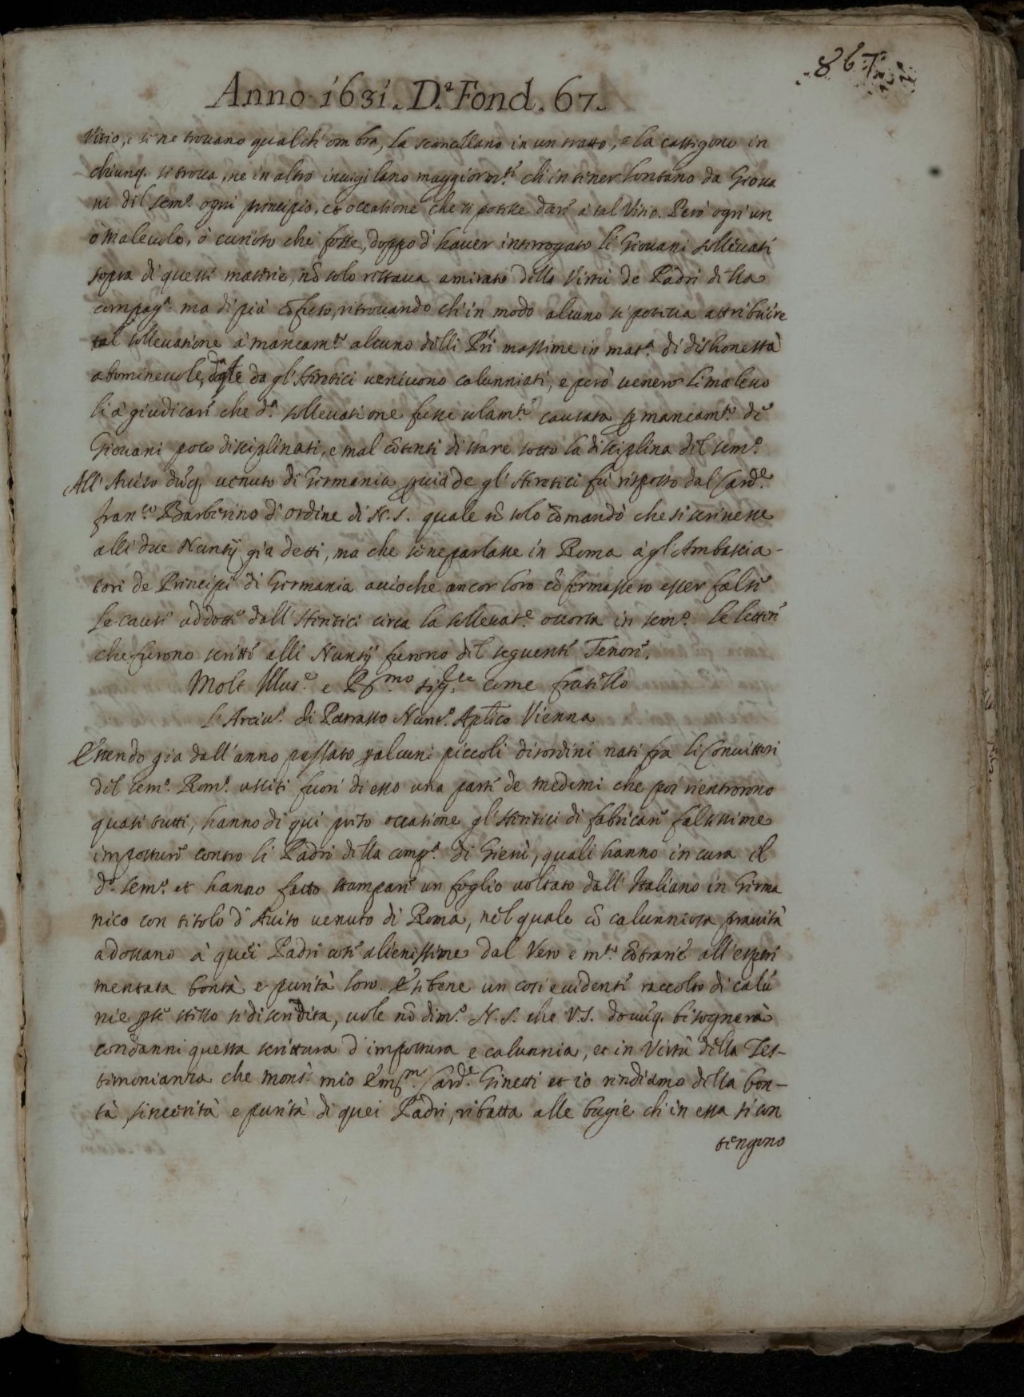 867
Anno 1631. D.ª Fond. 67.
Vitio, e se ne trovano qualch'ombra, la scancellano in un tratto, e la castigono in
chiunq. si trova, ne in altro invigilano maggiorm.te ch'in tener lontano da Giova
ni del Sem.º ogni principio, et occasione che si potesse dare à tal Vitio. Però ogn'un
ò malevolo, ò curioso che fosse, doppo d'haver interrogato li Giovani sollevati
sopra di queste materie, nō solo restava amirato della Virtù de Padri della
compag.ª ma di più cōfuso, ritrovando ch'in modo alcuno si poteva attribuire
tal sollevatione à mancam.to alcuno delli Pri massime in mat.ª di dishonestà
abominevole, dalle da gl'Heretici venivono calunniati, e però venero li malevo
li à giudicare che d.ª sollevatione fosse solam.te causata p mancam.to de
Giovani poco disciplinati, e mal cōtenti di stare sotto la disciplina del Sem.º
All'Aviso dūq. venuto di Germania de gl'Heretici fu risposto dal Card.e
Fran.co Barberino d'ordine di N.S. quale nō solo cōmandò che si scrivesse
alli due Nuntij già detti, ma che se ne parlasse in Roma à gl'Ambascia-
tori de Principi di Germania acciochè ancor loro cōfermassero esser false
le cause addotte dall'Heretici circa la sollevat.e occorsa in Sem.º Le lettere
che furono scritte alli Nuntij furono del seguente Tenore.
Molt'Illus.e e R.mo Sig.re come fratello
L'Arciv.º di Patrasso Nunt.º Ap.lico Vienna
Essendo già dall'anno passato p alcuni piccoli disordini nati fra li Convittori
del Sem.º Rom.º usciti fuori di esso una parte de medemi che poi rientrorono
quasi tutti, hanno di qui preso occasione gl'Heretici di fabricare falsissime
imposture contro li Padri della comp.ª di Giesù, quali hanno in cura il
d.º Sem.º et hanno fatto stampare un foglio voltato dall'Italiano in Germa
nico con titolo d'Aviso venuto di Roma, nel quale cō calunniosa pravità
adossano à quei Padri cose alienissime dal Vero e m.to cōtrarie all'esperi
mentata bontà e purità loro. E se bene un così evidente raccolto di calū
nie p se stesso si discredita, vole nō dim.º N.S. che V.S. dovūq. bisognerà
condanni questa scrittura d'impostura e calunnia, et in Virtù della Tes-
timonianza che mons.r mio Em.mo Card.e Ginetti et io rendiamo della bon-
tà, sincerità e purità di quei Padri, ribatta alle bugie ch'in essa si con
tengono